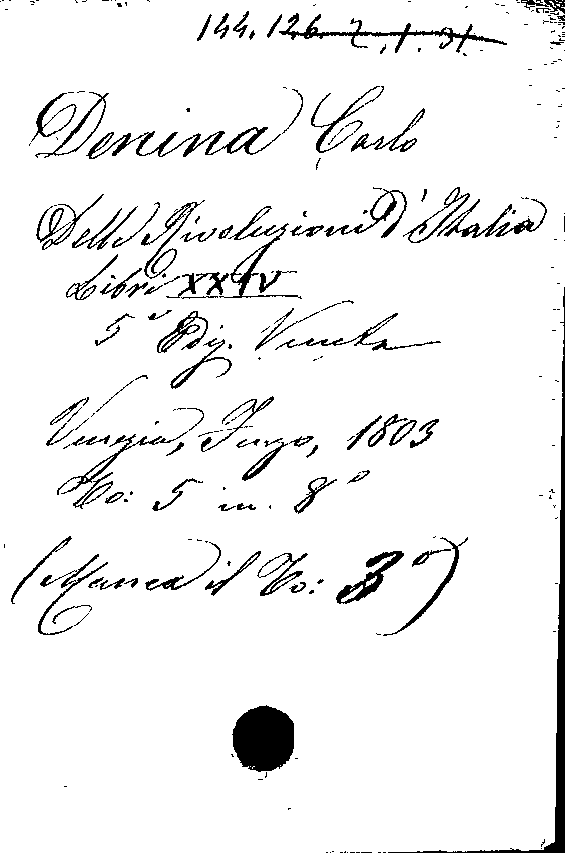 144.126. Z.1.31.
Denina Carlo
Delle Rivoluzioni d'Italia
Libri XXIV
5ª Ediz. Veneta
Venezia, 1803
To: 5 in 8º
(Manca il To: 3º)